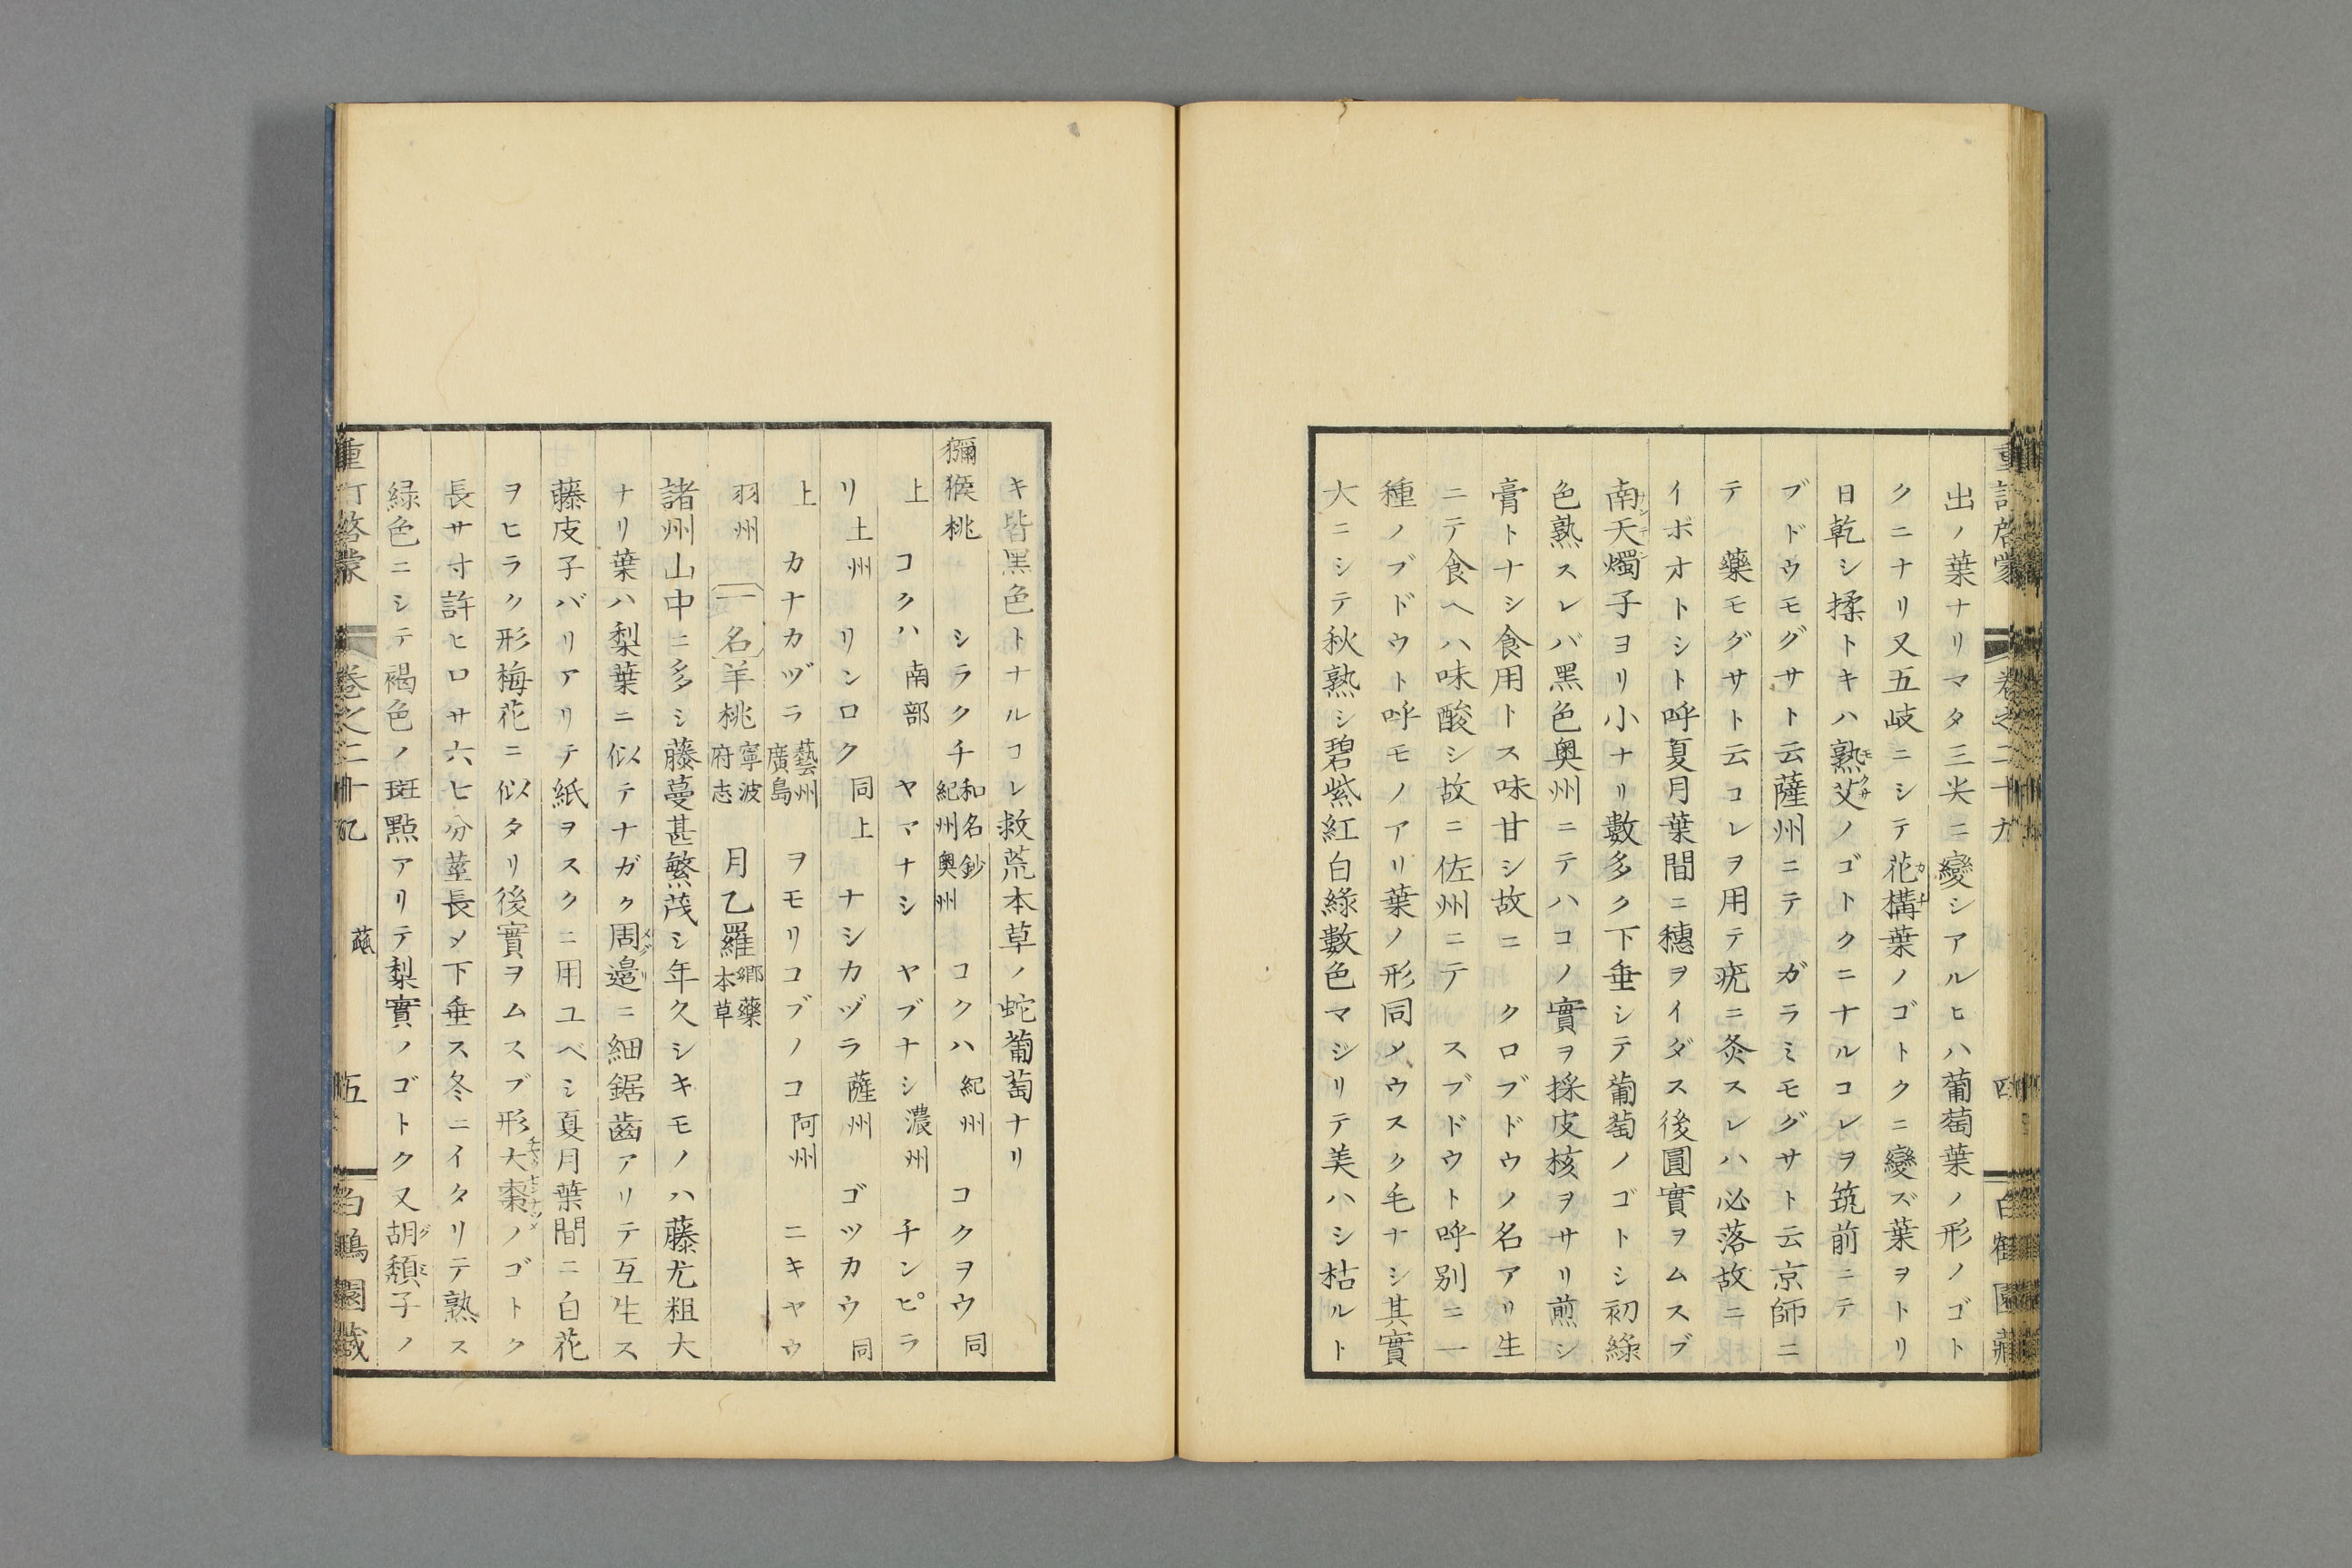 重訂啓蒙 卷之二十九 四 白鶴園藏
出ノ葉ナリマタ三尖ニ變シアルヒハ葡萄葉ノ形ノゴト
クニナリ又五岐ニシテ花構葉ノゴトクニ變ズ葉ヲトリ
日乾シ揉トキハ熟艾ノゴトクニナルコレヲ筑前ニテ
ブドウモグサト云薩州ニテ ガラミモグサト云京師ニ
テ 藥モグサト云コレヲ用テ疣ニ灸スレハ必落故ニ
イボオトシト呼夏月葉間ニ穗ヲイダス後圓實ヲムスブ
南天燭子ヨリ小ナリ數多ク下垂シテ葡萄ノゴトシ初綠
色熟スレバ黑色奥州ニテハコノ實ヲ採皮核ヲサリ煎シ
膏トナシ食用トス味甘シ故ニ クロブドウノ名アリ生
ニテ食ヘハ味酸シ故ニ佐州ニテ スブドウト呼別ニ一
種ノブドウト呼モノアリ葉ノ形同メウスク毛ナシ其實
大ニシテ秋熟シ碧紫紅白綠數色マジリテ美ハシ枯ルト
キ皆黑色トナルコレ救荒本草ノ蛇葡萄ナリ
獼猴桃 シラクチ和名鈔紀州奥州 コクハ紀州 コクヲウ同
上 コクハ南部 ヤマナシ ヤブナシ濃州 チンピラ
リ上州 リンロク同上 ナシカヅラ薩州 ゴツカウ同
上 カナカヅラ藝州廣島 ヲモリコブノコ阿州 ニキヤウ
羽州 一名羊桃寧波府志 月乙羅鄉藥本草
諸州山中ニ多シ藤蔓甚繁茂シ年久シキモノハ藤尤粗大
ナリ葉ハ梨葉ニ似テナガク周邉ニ細鋸齒アリテ互生ス
藤皮子バリアリテ紙ヲスクニ用ユベシ夏月葉間ニ白花
ヲヒラク形梅花ニ似タリ後實ヲムスブ形大棗ノゴトク
長サ寸許ヒロサ六七分莖長メ下垂ス冬ニイタリテ熟ス
緑色ニシテ褐色ノ斑點アリテ梨實ノゴトク又胡頽子ノ
重訂啓蒙 卷之二十九 蓏 五 白鶴園藏